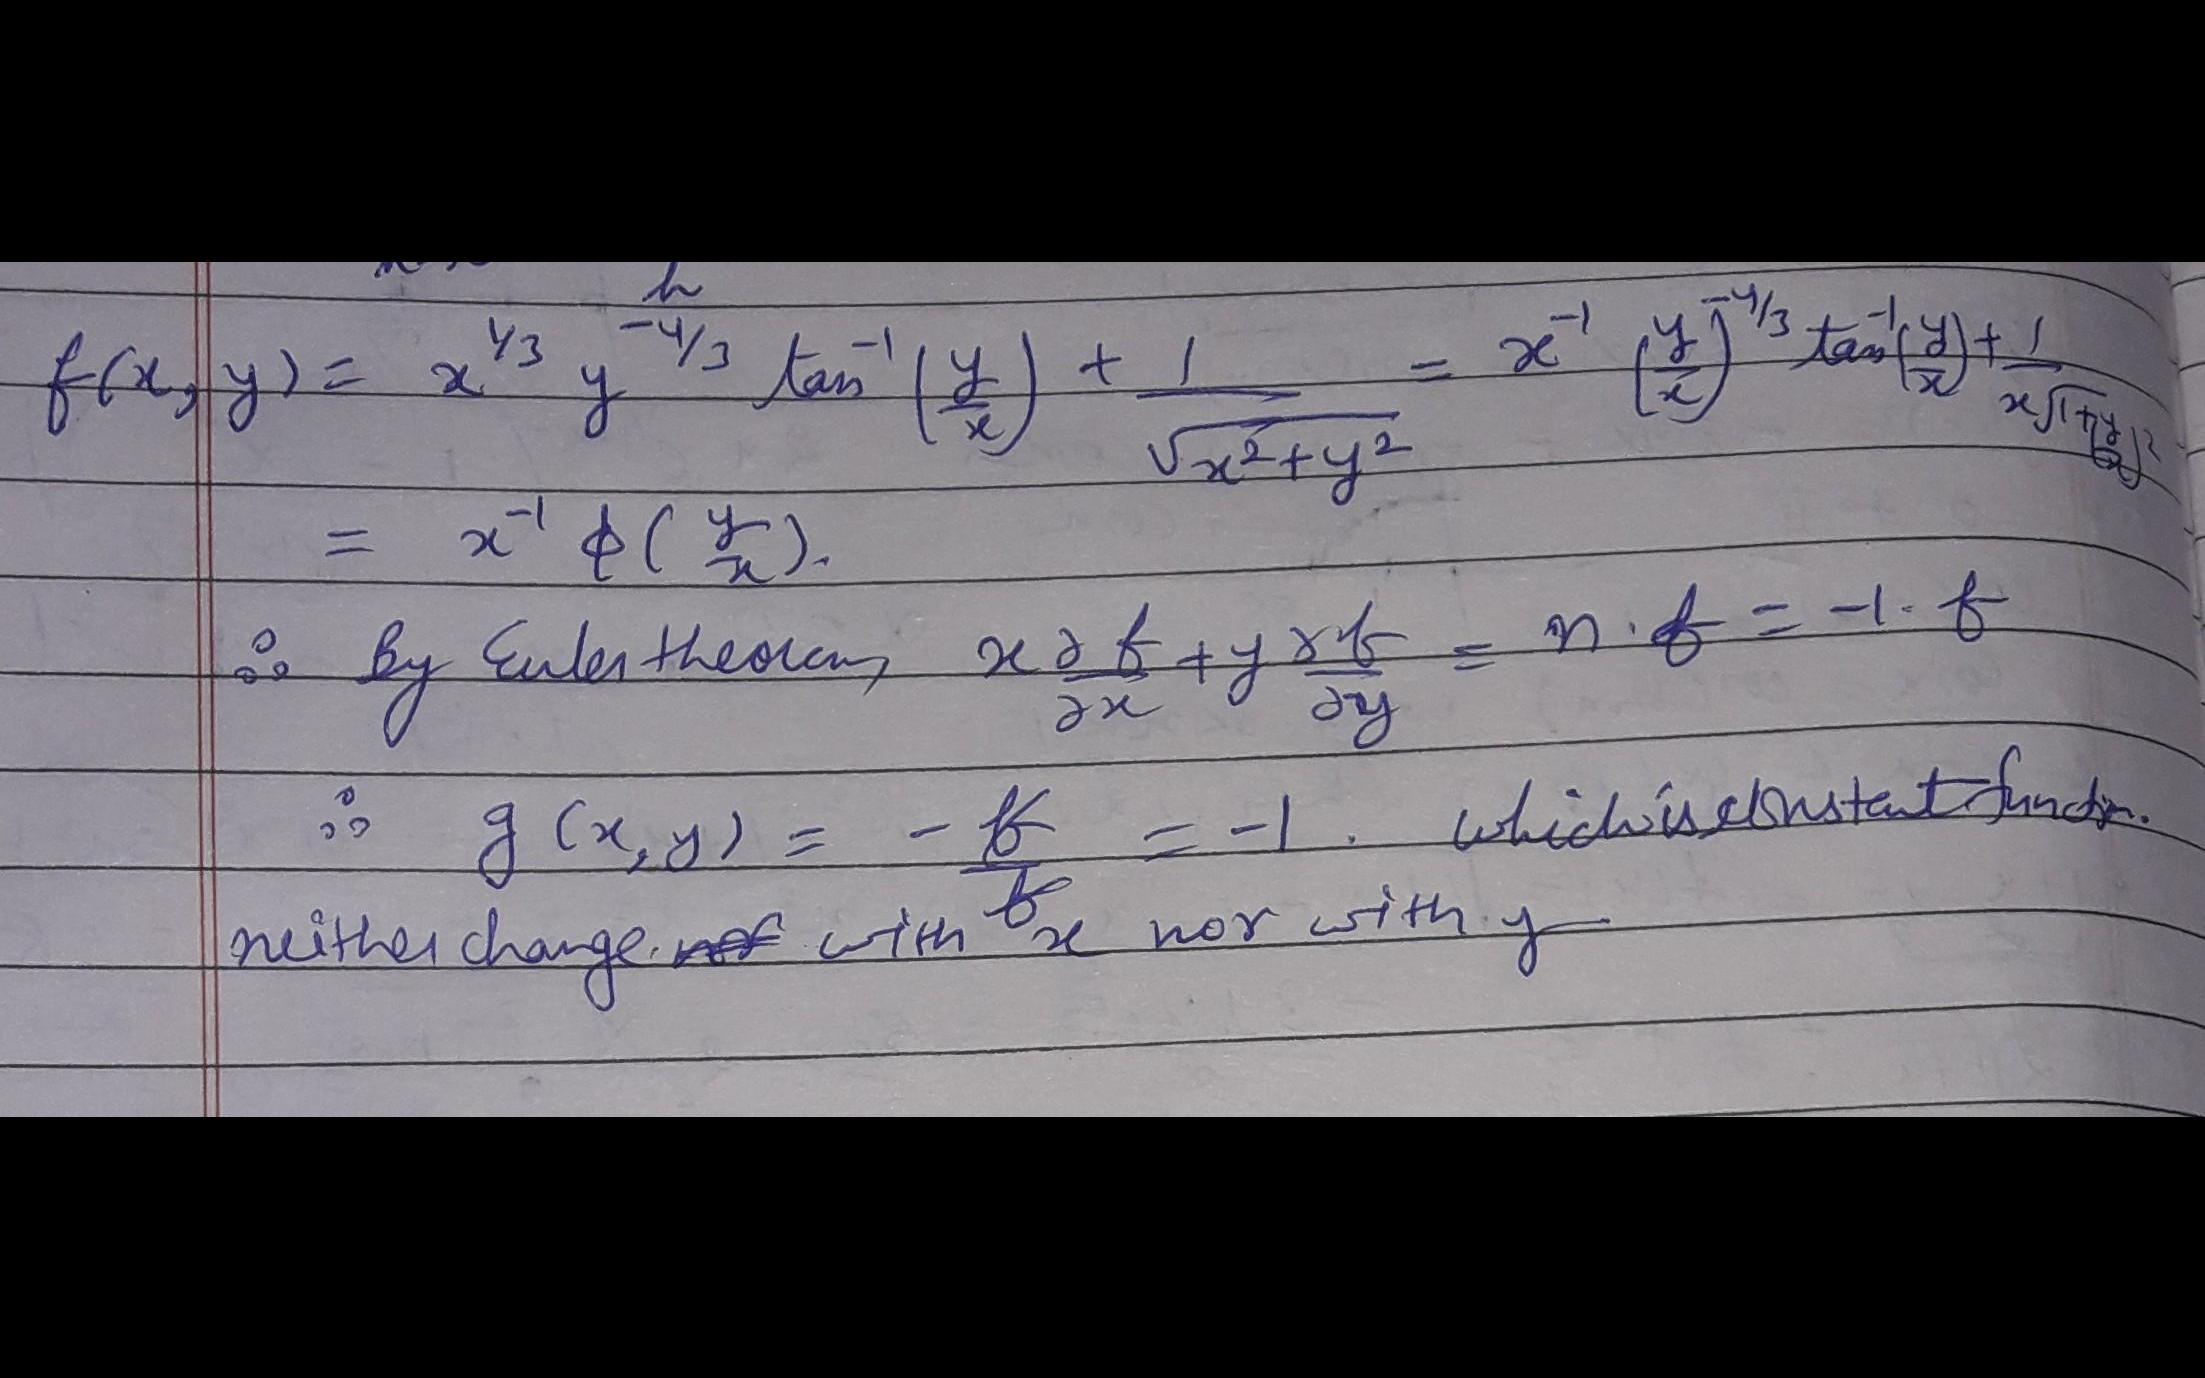 h
f(x, y) = x^{1/3} y^{-4/3} tan^{-1} (y/x) + 1/√(x²+y²) = x^{-1} (y/x)^{-4/3} tan^{-1}(y/x) + 1/(x√(1+(y/x)²))
= x^{-1} ϕ(y/x).
∴ By Euler theorem, x ∂f/∂x + y ∂f/∂y = n · f = -1 · f
∴ g(x, y) = -f/f = -1. which is constant function.
neither change with x nor with y